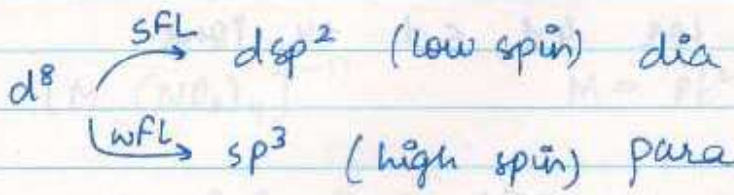 SFL dsp² (low spin) dia
d⁸
WFL sp³ (high spin) para